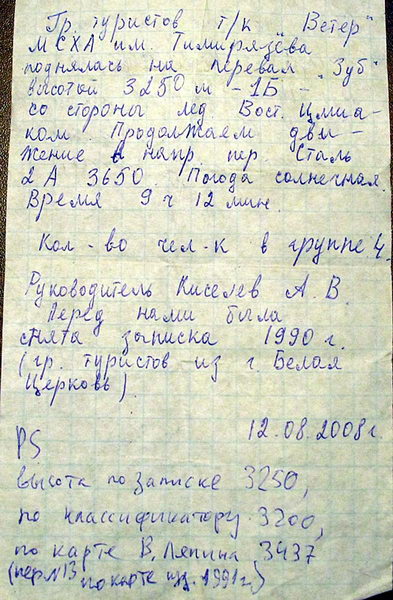 Гр. туристов т/к "Ветер"
МСХА им. Тимирязева
поднялась на перевал "Зуб"
высотой 3250 м - 1Б -
со стороны лед. Вост. Цмиа-
ком. Продолжаем дви-
жение в напр. пер. Сталь
2А 3650. Погода солнечная.
Время 9 ч 12 мин.
Кол-во чел-к в группе 4.
Руководитель Киселев А. В.
Перед нами была
снята записка 1990 г.
(гр. туристов из г. Белая
Церковь).
12.08.2008 г.
PS
высота по записке 3250,
по классификатору 3200,
по карте В. Ляпина 3437
(пер. №13 по карте изд. 1991 г.)